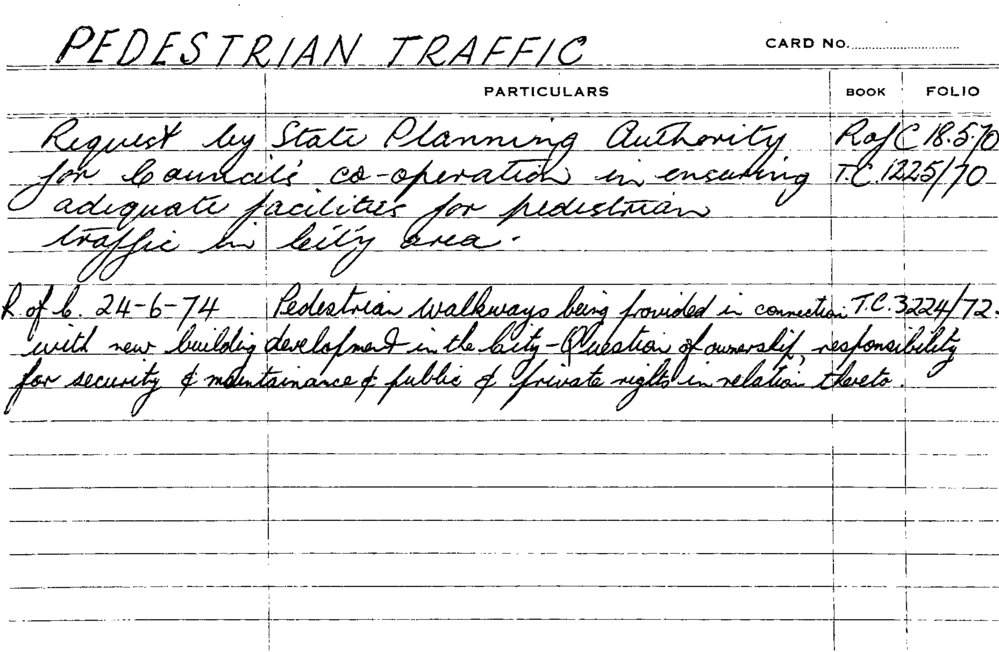 PEDESTRIAN TRAFFIC CARD No.
PARTICULARS BOOK FOLIO
Request by State Planning Authority R of C 18.5.70
for Council's co-operation in ensuring T.C. 1225/70
adequate facilities for pedestrian
traffic in City area.
R of C. 24-6-74 Pedestrian walkways being provided in connection T.C. 3224/72.
with new building development in the City - Question of ownership, responsibility
for security & maintainance & public & private rights in relation thereto.